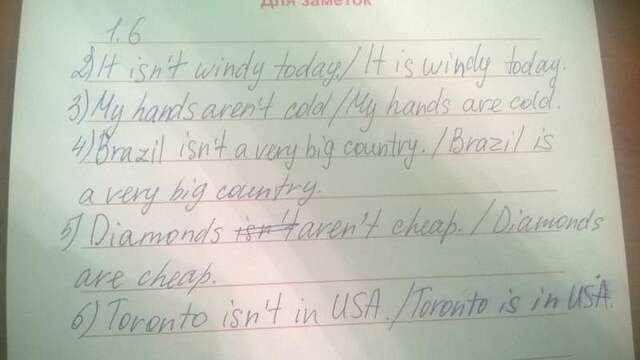 Для заметок
1.6
2) It isn't windy today./It is windy today.
3) My hands aren't cold/My hands are cold.
4) Brazil isn't a very big country./Brazil is
a very big country.
5) Diamonds isn't aren't cheap./Diamonds
are cheap.
6) Toronto isn't in USA./Toronto is in USA.